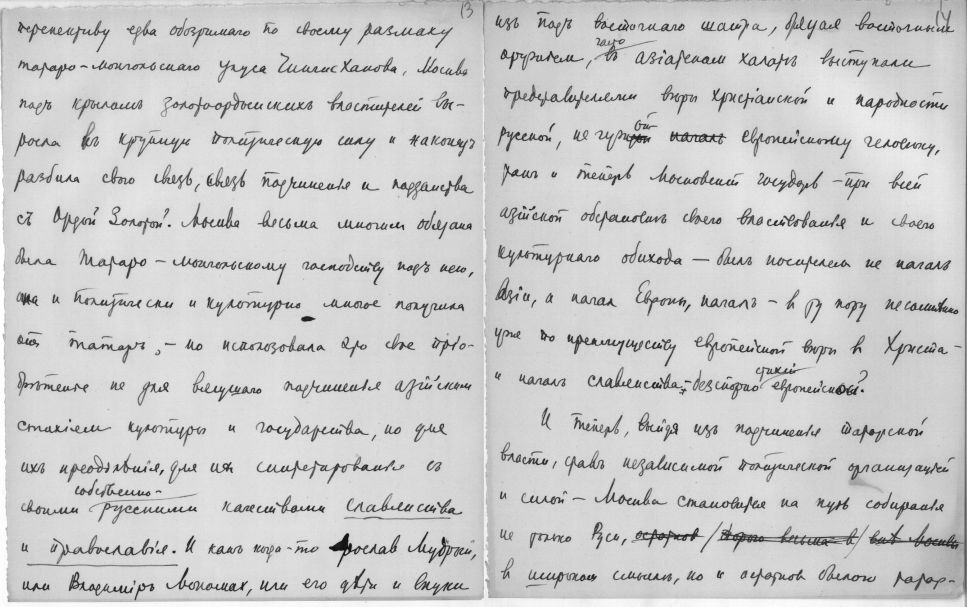 13
перспективу едва обозримаго по своему размаху
татаро-монгольскаго улуса Чингис Ханова, Москва
подъ крыломъ золотоордынскихъ властителей вы-
росла въ крупную политическую силу и наконецъ
разбила свою связь, связь подчиненья и подданства
съ Ордой Золотой. Москва весьма многим обязана
была татаро-монгольскому господству подъ нею,
она и политически и культурно многое получила
отъ татаръ, – но использовала это свое прiо-
брѣтенье не для вящшаго подчиненья азiйским
стихiям культуры и государства, но для
ихъ преодолѣнiя, для их синтетированья съ
собственно-
своими русскими качествами славянства
и православiя. И какъ когда-то Ярослав Мудрый,
или Владимiръ Мономах, или его дѣти и внуки
14
изъ подъ восточнаго шатра, бряцая восточным
оружiем, часто въ азiатском халатѣ выступали
представителями вѣры Христiанской и народности
русской, не чуждой началъ европейскому человѣку,
такъ и теперь Московскiй государь – при всей
азiйской обстановкѣ своего властвованья и своего
культурнаго обихода – былъ носителем не началъ
Азiи, а начал Европы, началъ – в ту пору несомнѣнно
уже по преимуществу европейской вѣры в Христа –
и началъ славянства, – безспорно стихiи европейской.
И теперь, выйдя изъ подчиненья татарской
власти, ставъ независимой политической организацiей
и силой – Москва становится на путь собиранья
не только Руси,
в широком смыслѣ, но и остатков былого татар-